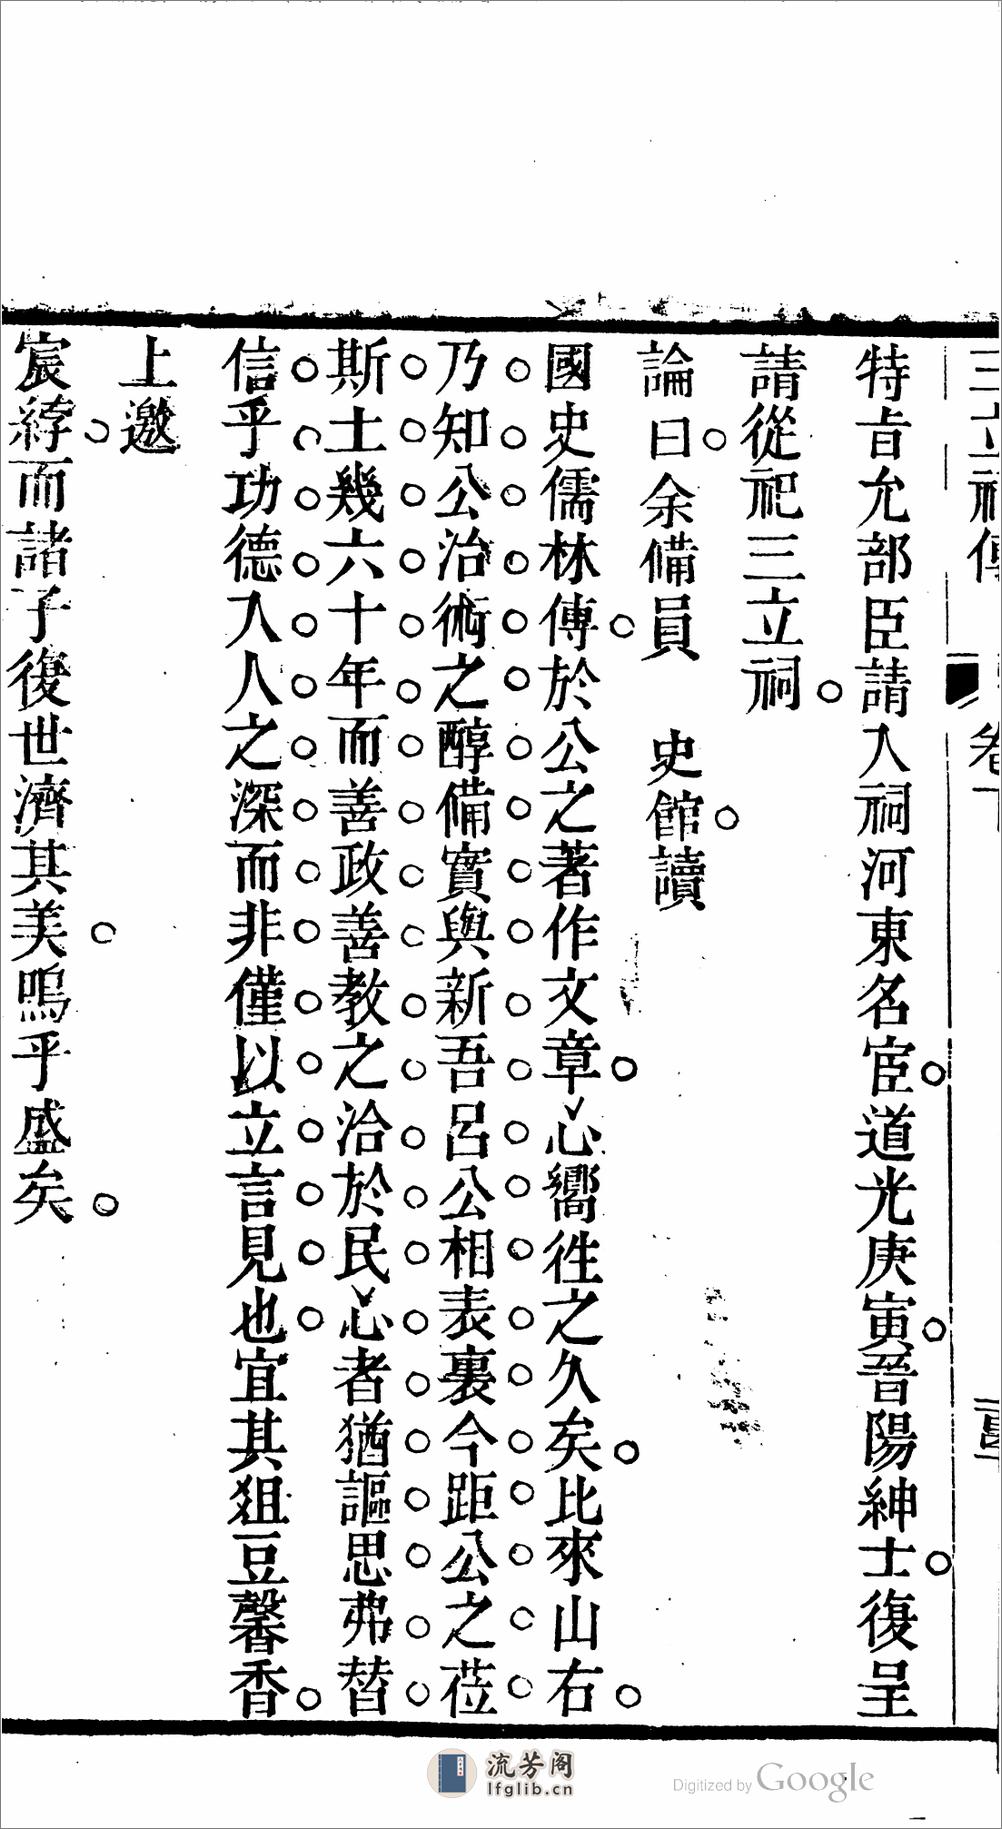 三立祠傳 卷下
特旨允部臣請入祠河東名宦道光庚寅晉陽紳士復呈
請從祀三立祠
論曰余備員 史館讀
國史儒林傳於公之著作文章心嚮徃之久矣比來山右
乃知公治術之醇備實與新吾呂公相表裏今距公之莅
斯土幾六十年而善政善教之洽於民心者猶謳思弗替
信乎功德入人之深而非僅以立言見也宜其爼豆馨香
上邀
宸綍而諸子復世濟其美嗚乎盛矣
流芳阁
lfglib.cn
Digitized by Google